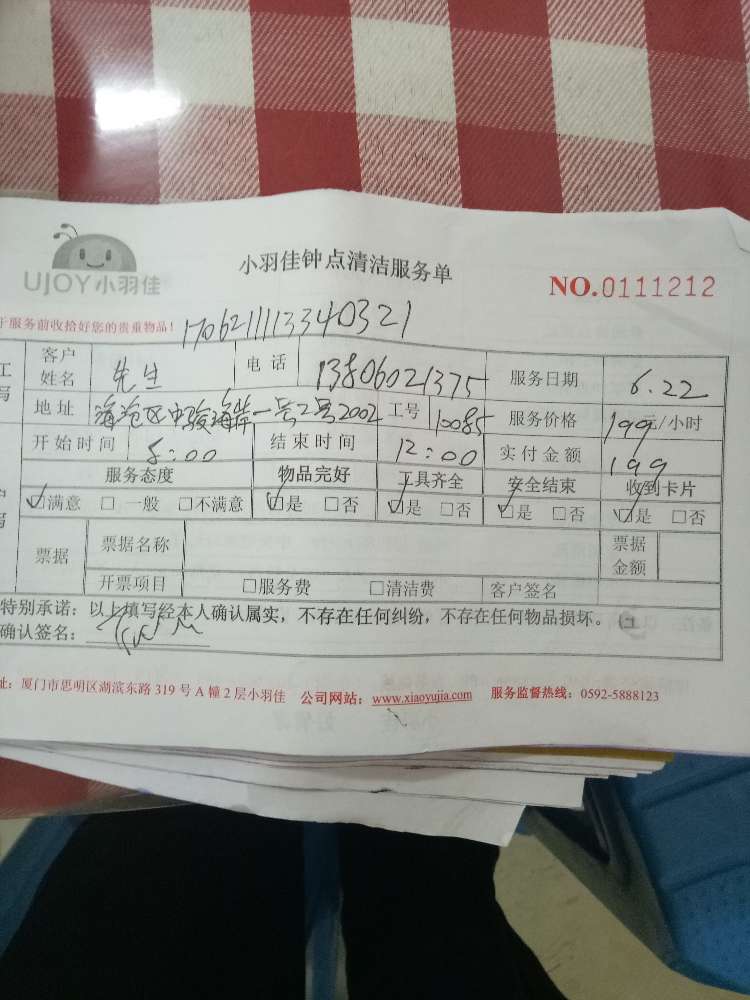 UJOY小羽佳
小羽佳钟点清洁服务单
NO.0111212
于服务前收拾好您的贵重物品!
1706211113340321
客户姓名 先生 电话 13806021375 服务日期 6.22
地址 海沧区中骏海岸一号2号2002 工号 10085 服务价格 199元/小时
开始时间 8:00 结束时间 12:00 实付金额 199
服务态度 物品完好 工具齐全 安全结束 收到卡片
☑满意 □一般 □不满意 ☑是 □否 ☑是 □否 ☑是 □否 ☑是 □否
票据 票据名称 票据金额
开票项目 □服务费 □清洁费 客户签名
特别承诺:以上填写经本人确认属实,不存在任何纠纷,不存在任何物品损坏。
确认签名:
址:厦门市思明区湖滨东路 319 号 A 幢 2 层小羽佳 公司网站:www.xiaoyujia.com 服务监督热线:0592-5888123